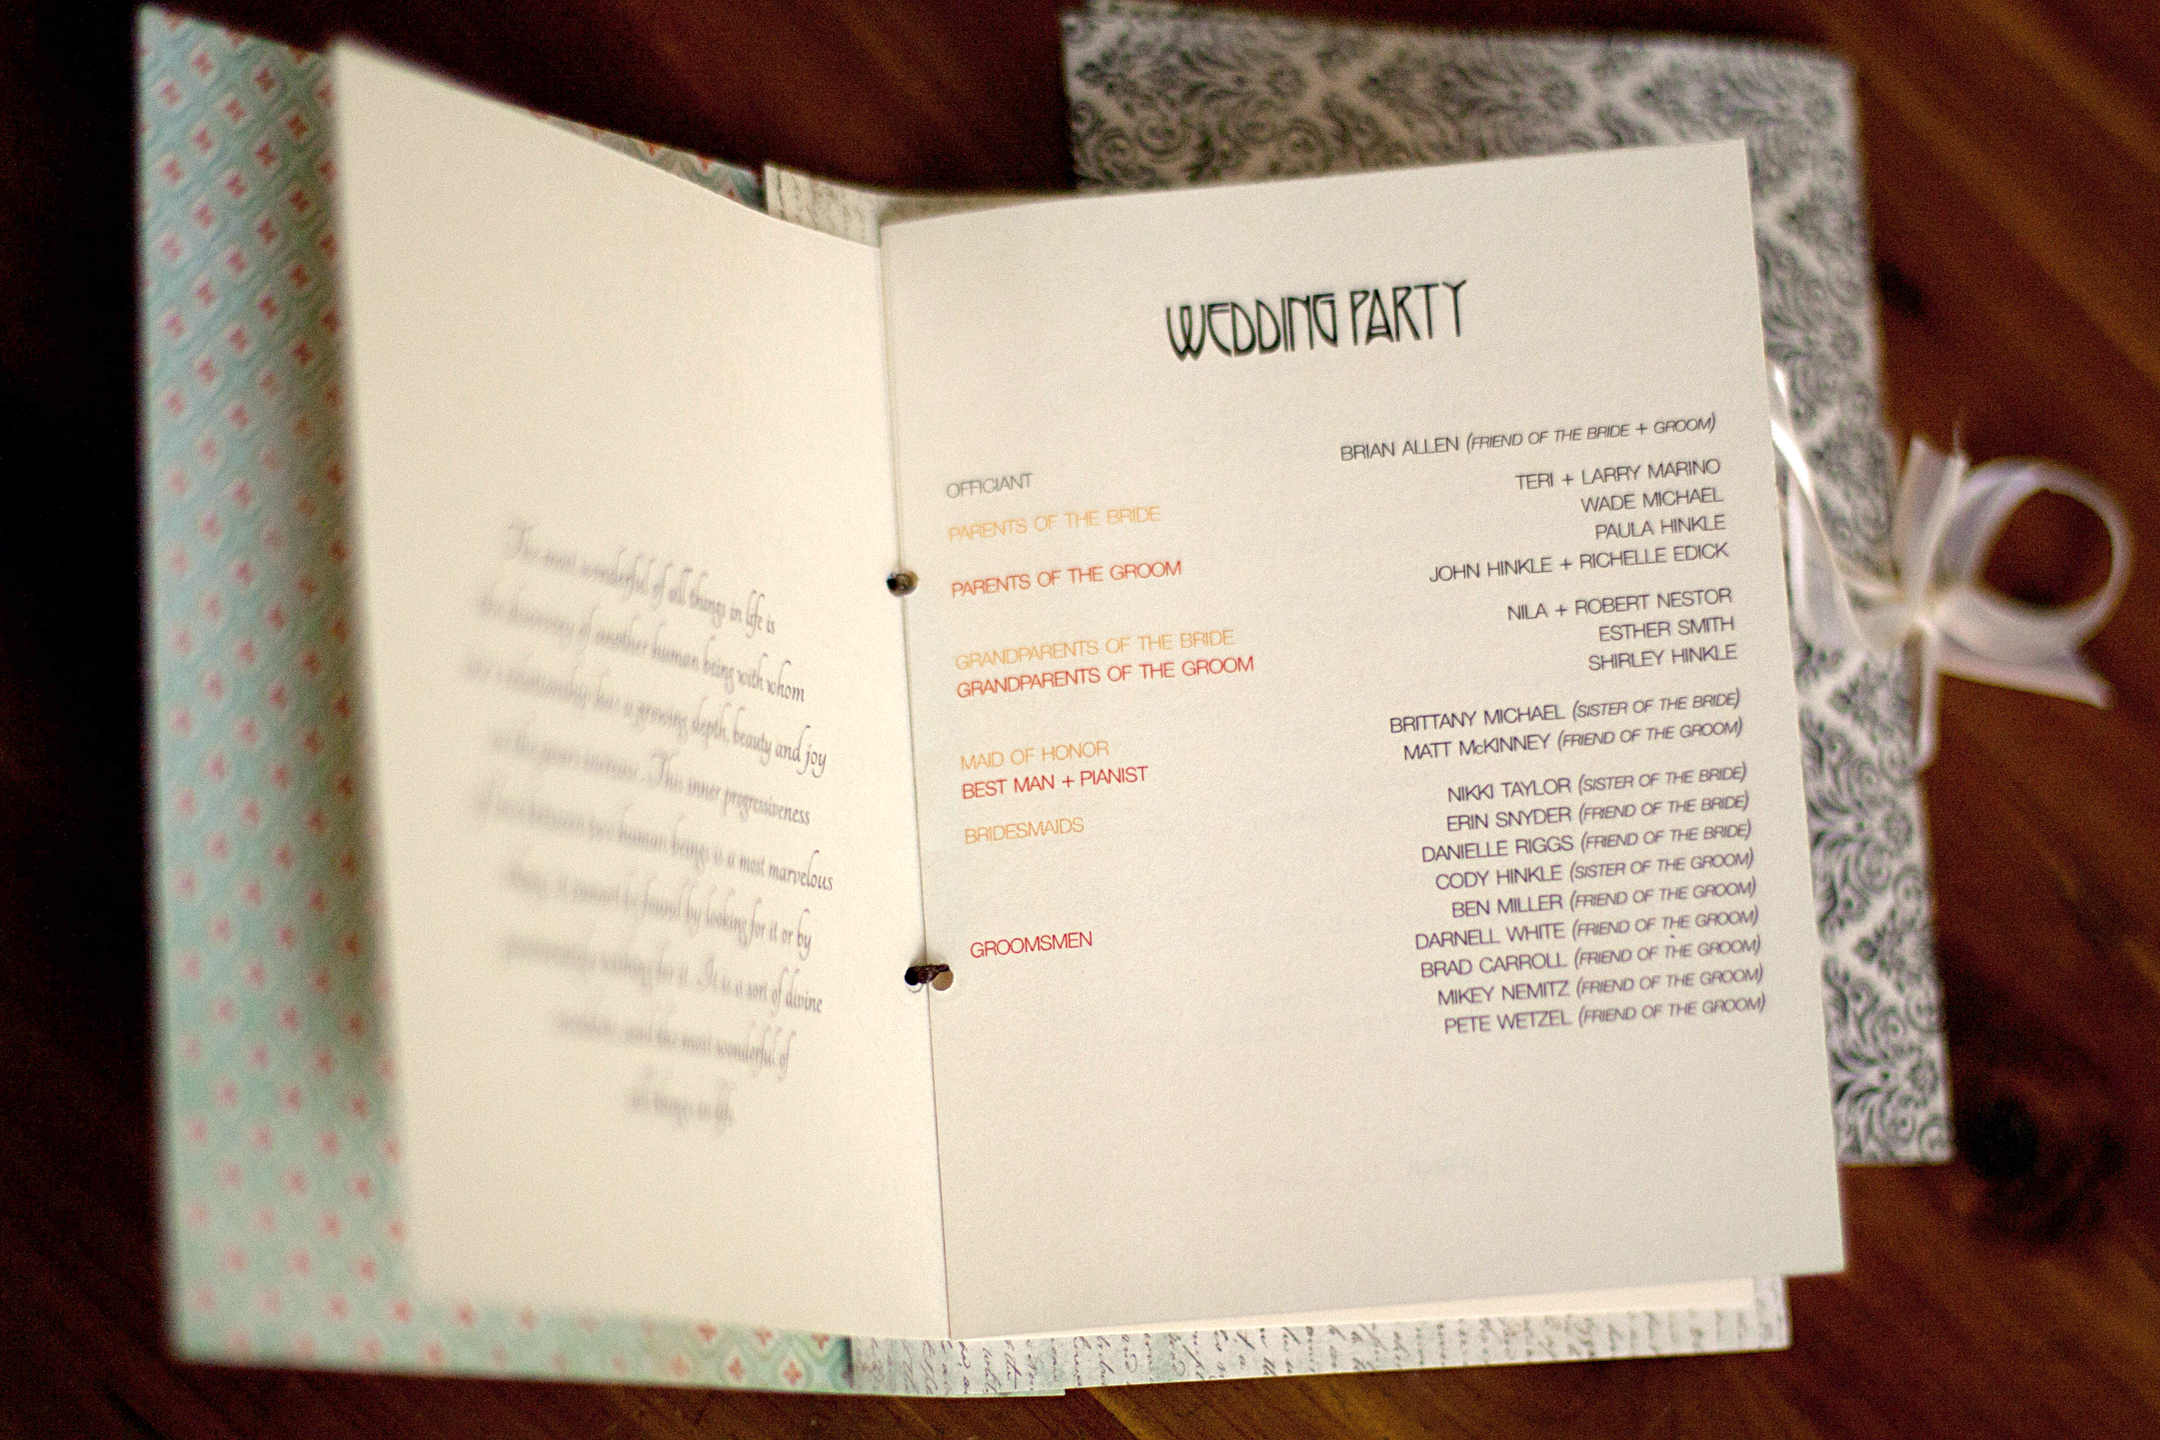 The most wonderful of all things in life is
the discovery of another human being with whom
one's relationship has a growing depth, beauty and joy
as the years increase. This inner progressiveness
of love between two human beings is a most marvelous
thing, it cannot be found by looking for it or by
passionately wishing for it. It is a sort of divine
accident, and the most wonderful of
all things in life.
WEDDING PARTY
OFFICIANT BRIAN ALLEN (FRIEND OF THE BRIDE + GROOM)
PARENTS OF THE BRIDE TERI + LARRY MARINO
WADE MICHAEL
PARENTS OF THE GROOM PAULA HINKLE
JOHN HINKLE + RICHELLE EDICK
GRANDPARENTS OF THE BRIDE NILA + ROBERT NESTOR
GRANDPARENTS OF THE GROOM ESTHER SMITH
SHIRLEY HINKLE
MAID OF HONOR BRITTANY MICHAEL (SISTER OF THE BRIDE)
BEST MAN + PIANIST MATT McKINNEY (FRIEND OF THE GROOM)
BRIDESMAIDS NIKKI TAYLOR (SISTER OF THE BRIDE)
ERIN SNYDER (FRIEND OF THE BRIDE)
DANIELLE RIGGS (FRIEND OF THE BRIDE)
CODY HINKLE (SISTER OF THE GROOM)
GROOMSMEN BEN MILLER (FRIEND OF THE GROOM)
DARNELL WHITE (FRIEND OF THE GROOM)
BRAD CARROLL (FRIEND OF THE GROOM)
MIKEY NEMITZ (FRIEND OF THE GROOM)
PETE WETZEL (FRIEND OF THE GROOM)